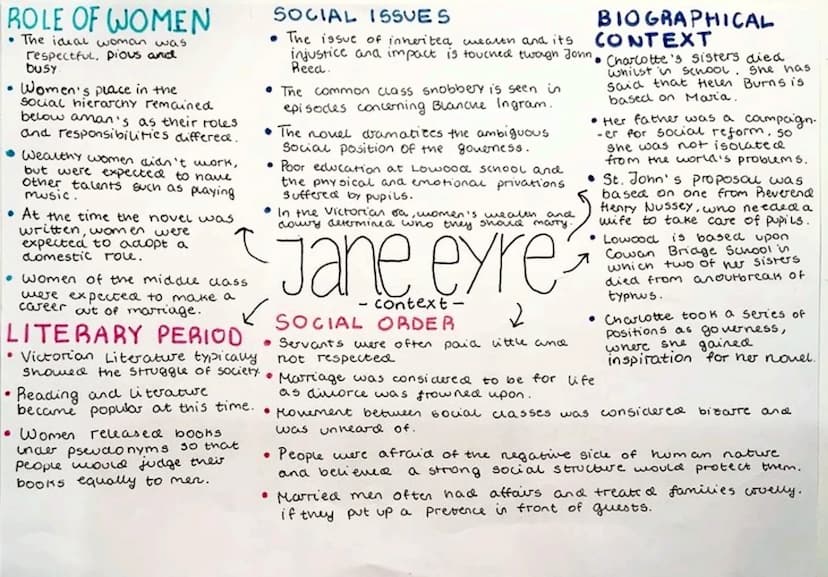 ROLE OF WOMEN
• The ideal woman was
respectful, pious and
busy.
• Women's place in the
social hierarchy remained
below aman's as their roles
and responsibilities differed.
• Wealthy women didn't work,
but were expected to have
other talents such as playing
music.
• At the time the novel was
written, women were
expected to adopt a
domestic role.
• Women of the middle class
were expected to make a
career out of marriage.
LITERARY PERIOD
• Victorian Literature typically
showed the struggle of society.
• Reading and literature
became popular at this time.
• Women released books
under pseudonyms so that
people would judge their
books equally to men.
SOCIAL ISSUES
• The issue of inherited wealth and its
injustice and impact is touched through John
Reed.
• The common class snobbery is seen in
episodes concerning Blanche Ingram.
• The novel dramatizes the ambiguous
social position of the governess.
• Poor education at Lowood school and
the physical and emotional privations
suffered by pupils.
• In the Victorian era, women's wealth and
dowry determined who they should marry.
Jane eyre
- context -
SOCIAL ORDER
• Servants were often paid little and
not respected
• Marriage was considered to be for life
as divorce was frowned upon.
• Movement between social classes was considered bizarre and
was unheard of.
• People were afraid of the negative side of human nature
and believed a strong social structure would protect them.
• Married men often had affairs and treated families cruelly.
if they put up a pretence in front of guests.
BIOGRAPHICAL
CONTEXT
• Charlotte's sisters died
whilst in school. She has
said that Helen Burns is
based on Maria.
• Her father was a campaign-
-er for social reform, so
she was not isolated
from the world's problems.
• St. John's proposal was
based on one from Reverend
Henry Nussey, who needed a
wife to take care of pupils.
• Lowood is based upon
Cowan Bridge School in
which two of her sisters
died from an outbreak of
typhus.
• Charlotte took a series of
positions as governess,
where she gained
inspiration for her novel.